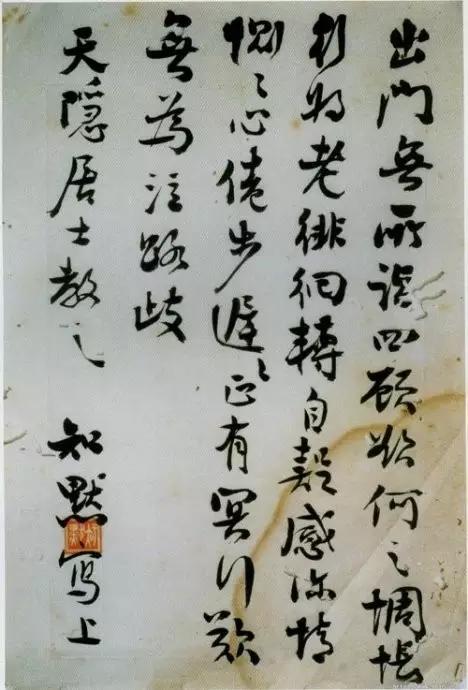 出門無所詣四顧欲何之惆悵
形將老徘徊轉自疑感深情
惘〻心倦步遲〻正有冥行歎
無為泣路歧
天隱居士教之 知默寫上